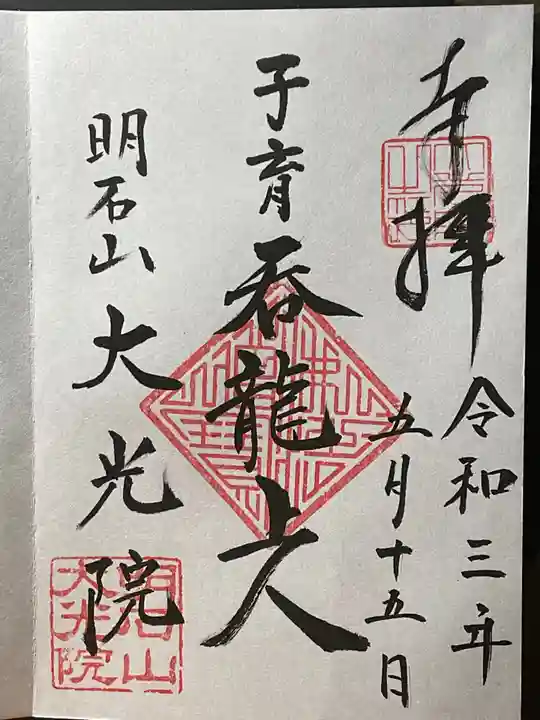 奉拝
令和三年
五月十五日
子育呑龍上人
明石山大光院
明石山
大光院